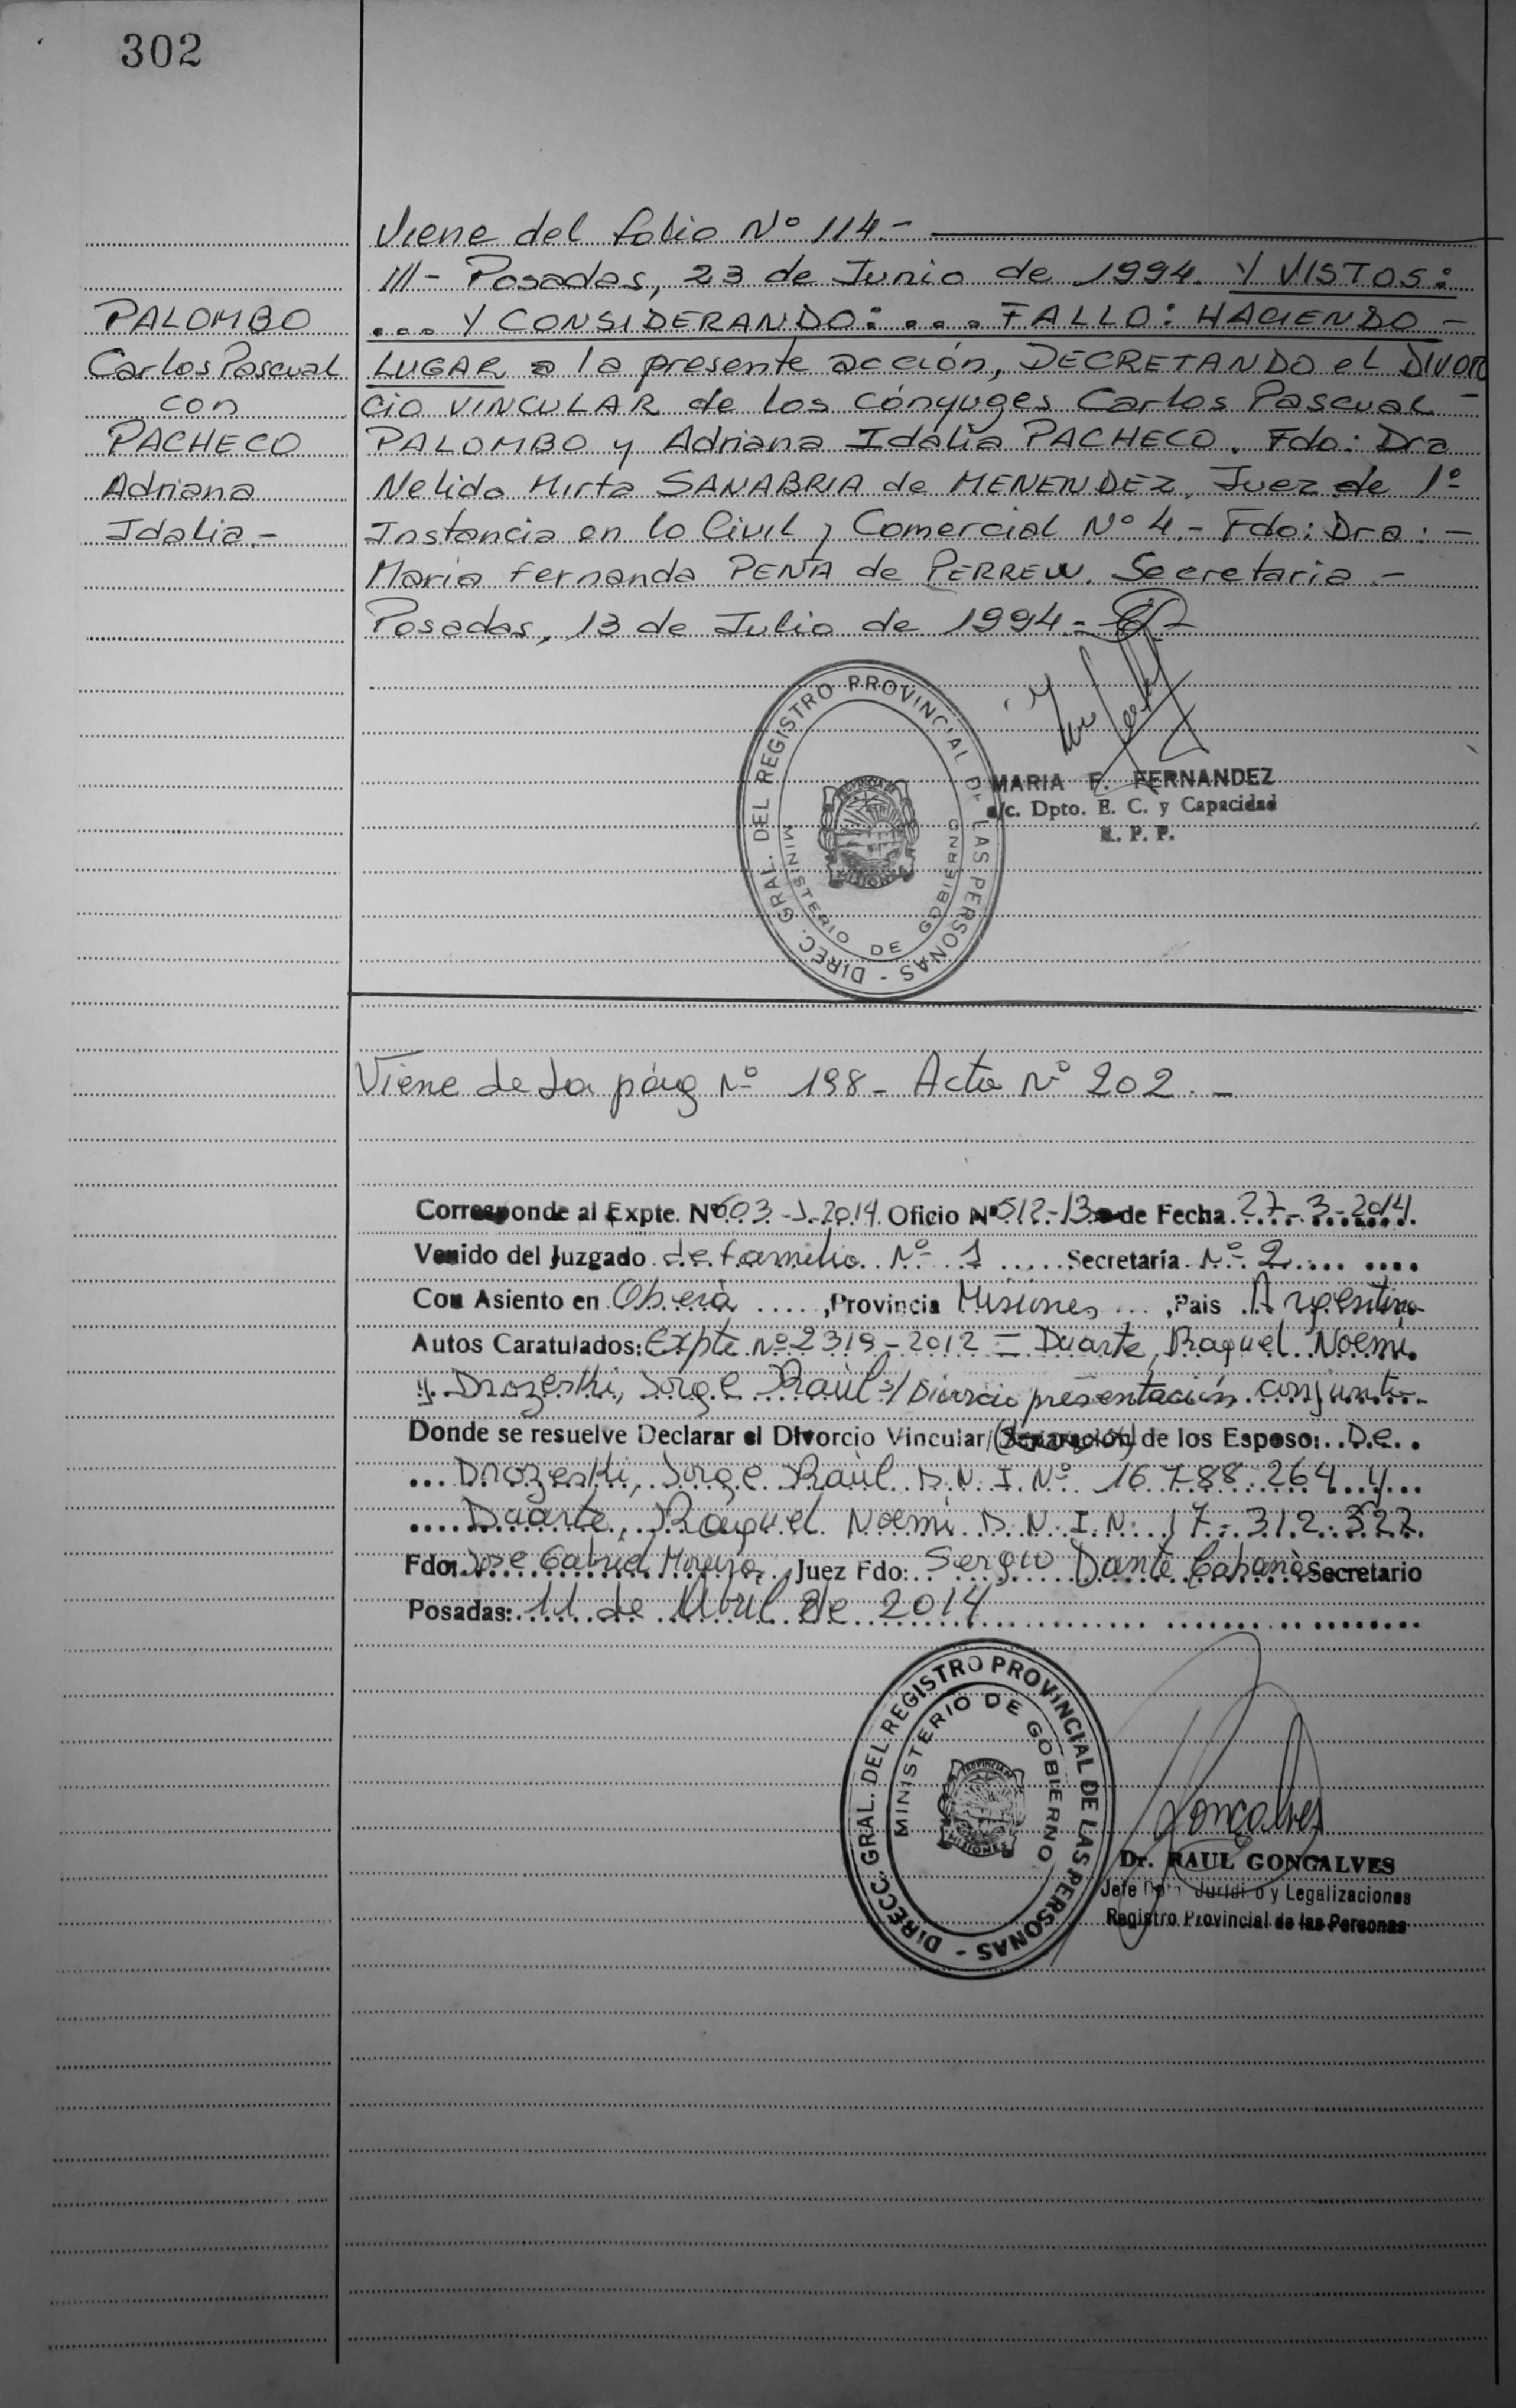 302
Viene del folio Nº 114.-
III- Posadas, 23 de Junio de 1994. Y VISTOS:
... Y CONSIDERANDO: ... FALLO: HACIENDO -
LUGAR a la presente acción, DECRETANDO el DIVOR
cio VINCULAR de los cónyuges Carlos Pascual -
PALOMBO y Adriana Idalia PACHECO. Fdo: Dra
Nelida Mirta SANABRIA de MENENDEZ, Juez de 1º
Instancia en lo Civil y Comercial Nº 4.- Fdo: Dra: -
Maria Fernanda PEÑA de Secretaria.-
Posadas, 13 de Julio de 1994.-
PALOMBO
Carlos Pascual
con
PACHECO
Adriana
Idalia.-
DIREC. GRAL. DEL REGISTRO PROVINCIAL DE LAS PERSONAS -
MINISTERIO DE GOBIERNO
MISIONES
MARIA F. FERNANDEZ
a/c. Dpto. E. C. y Capacidad
R. P. P.
Viene de la pág Nº 198 - Acta Nº 202.-
Corresponde al Expte. Nº 603-J-2014. Oficio Nº 512-13 de Fecha 27-3-2014
Venido del Juzgado de familia Nº 1 Secretaría Nº 2
Con Asiento en Oberá, Provincia Misiones, Pais Argentina
Autos Caratulados: Expte Nº 2319-2012 = Duarte, Raquel Noemi
y Drozeski, Jorge Raúl s/ Divorcio presentación conjunta
Donde se resuelve Declarar el Divorcio Vincular/(Separación) de los Esposo: De
Drozeski, Jorge Raúl D.N.I. Nº 16.788.264 y
Duarte, Raquel Noemi D.N.I. N: 17.312.322
Fdo: Jose Gabriel Juez Fdo: Sergio Dante Secretario
Posadas: 11 de Abril de 2014
DIRECC. GRAL. DEL REGISTRO PROVINCIAL DE LAS PERSONAS -
MINISTERIO DE GOBIERNO
PROVINCIA DE
MISIONES
Goncalves
Dr. RAUL GONCALVES
Jefe Dpto. Jurídico y Legalizaciones
Registro Provincial de las Personas